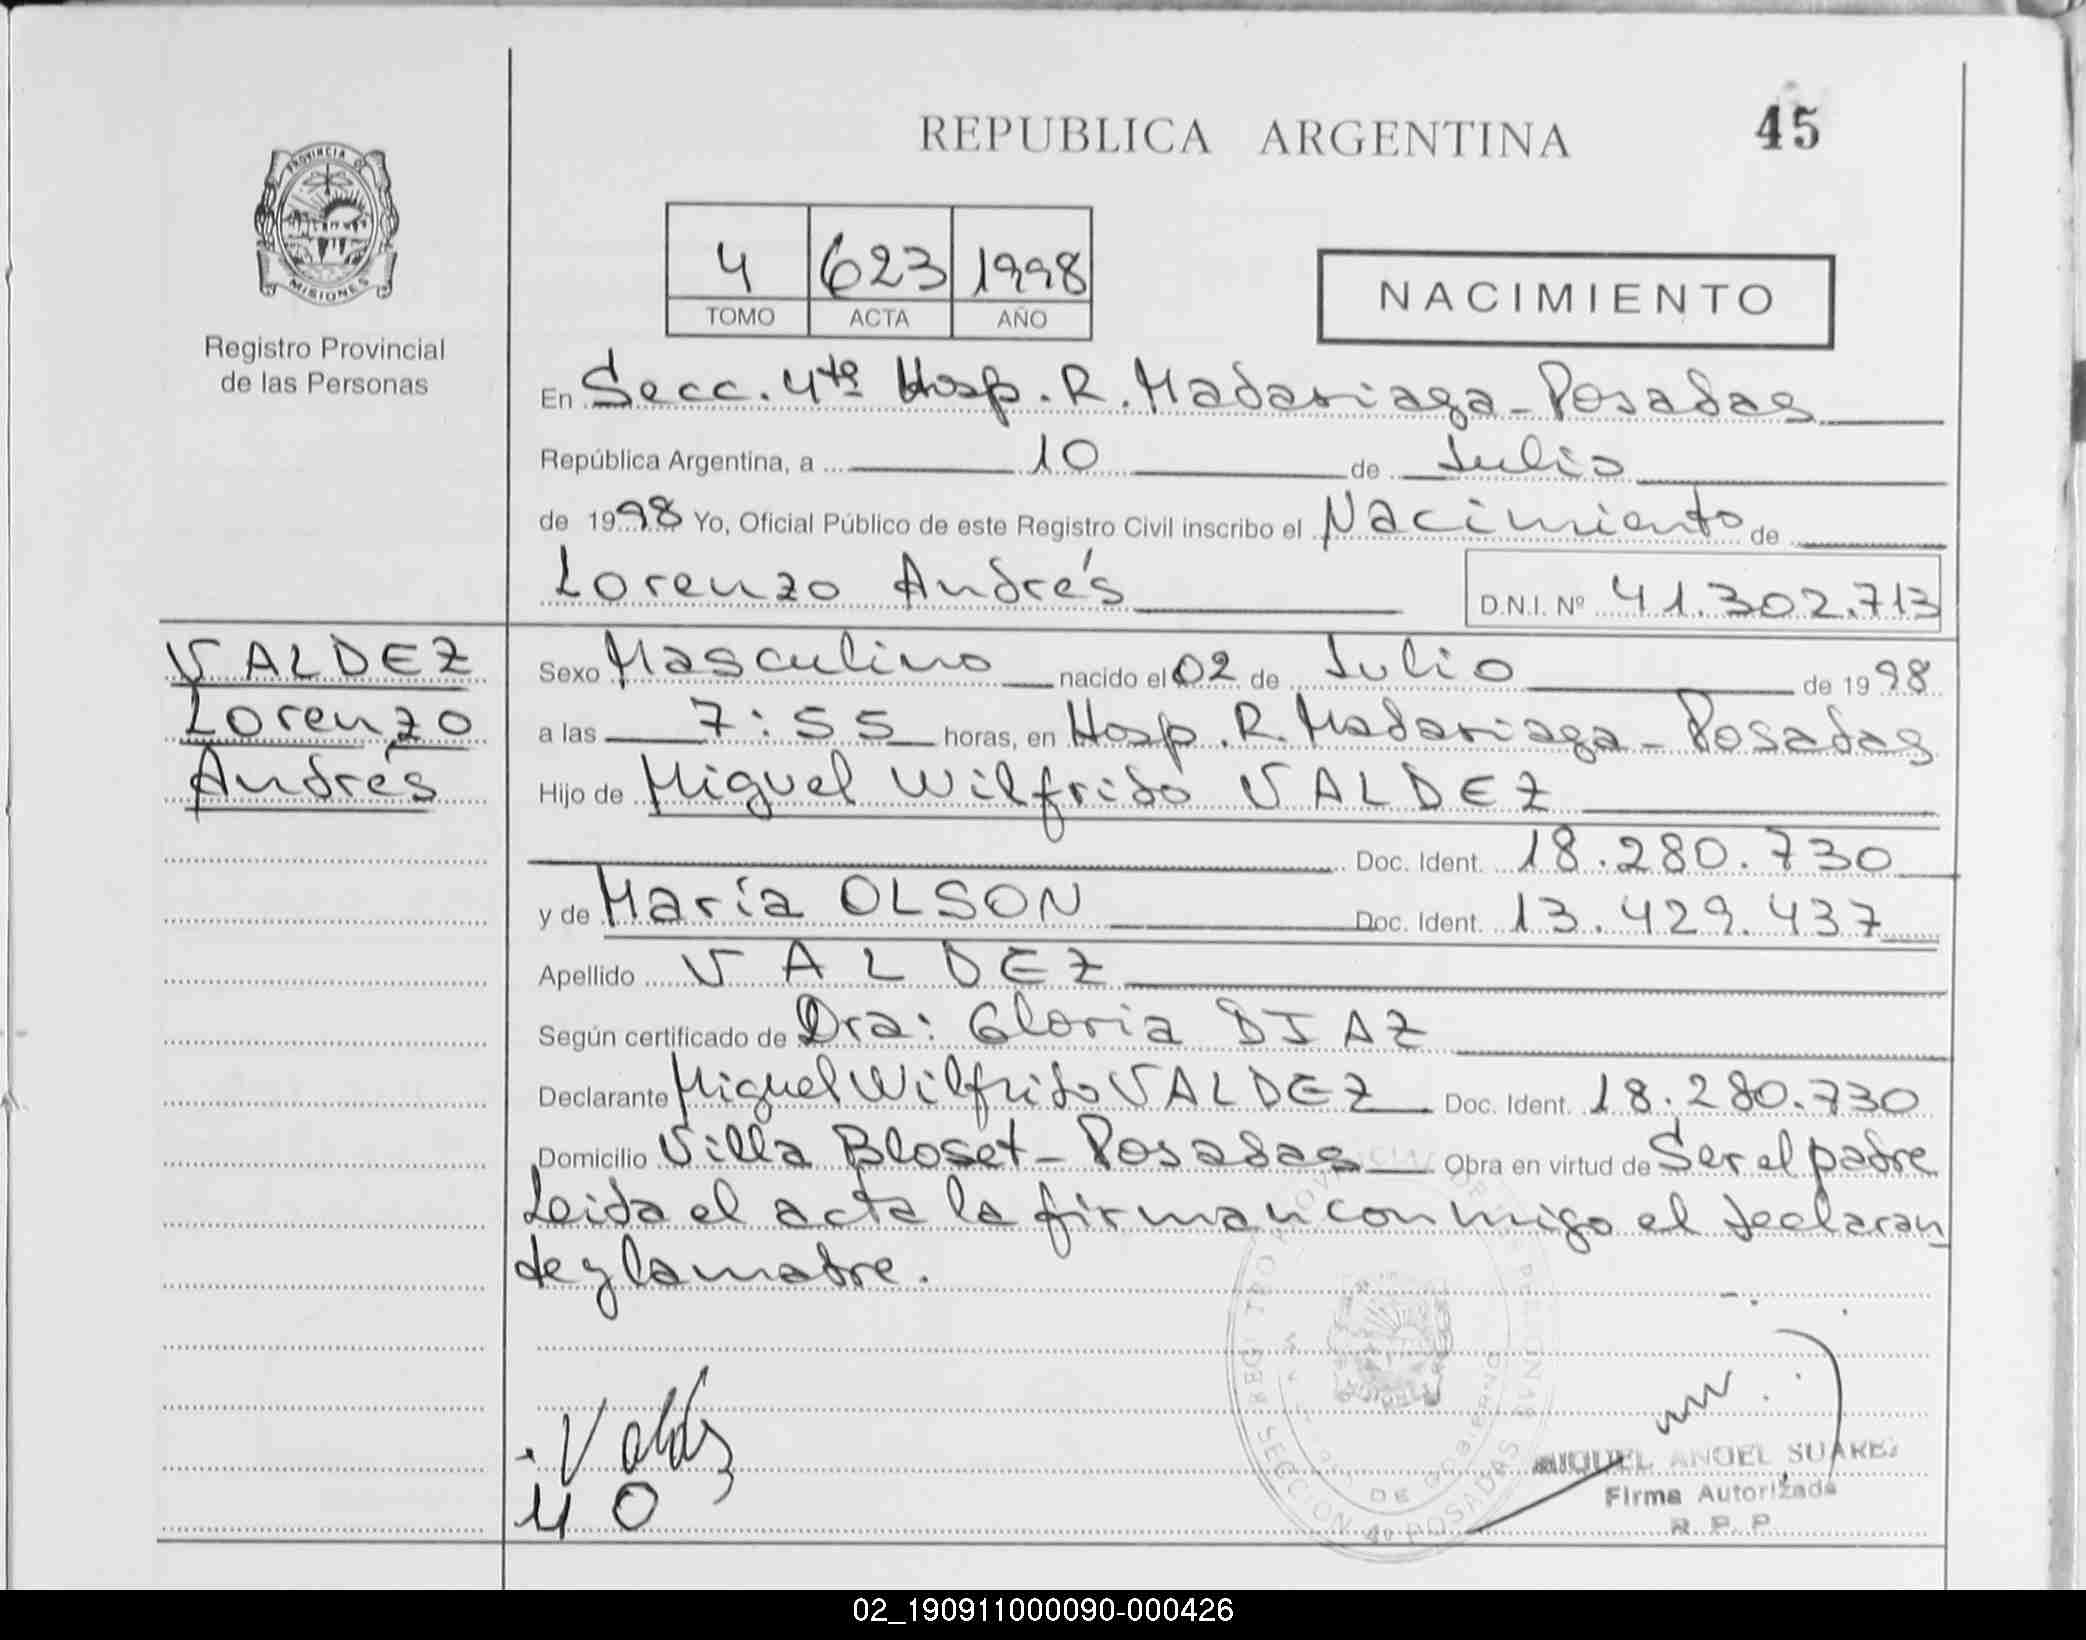 REPUBLICA ARGENTINA
45
PROVINCIA DE
MISIONES
Registro Provincial
de las Personas
4 623 1998
TOMO ACTA AÑO
NACIMIENTO
En Secc. 4ta Hosp. R. Madariaga - Posadas
República Argentina, a 10 de Julio
de 1998 Yo, Oficial Público de este Registro Civil inscribo el Nacimiento de
Lorenzo Andrés D.N.I. Nº 41.302.713
VALDEZ
Lorenzo
Andrés
Sexo Masculino nacido el 02 de Julio de 1998
a las 7:55 horas, en Hosp. R. Madariaga - Posadas
Hijo de Miguel Wilfrido VALDEZ
Doc. Ident. 18.280.730
y de María OLSON Doc. Ident. 13.429.437
Apellido VALDEZ
Según certificado de Dra: Gloria DIAZ
Declarante Miguel Wilfrido VALDEZ Doc. Ident. 18.280.730
Domicilio Villa Bloset - Posadas Obra en virtud de Ser el padre
Leida el acta la firman conmigo el declaran
te y la madre.
Valdz
M O
MIGUEL ANGEL SUAREZ
Firma Autorizada
R. P. P.
02_190911000090-000426